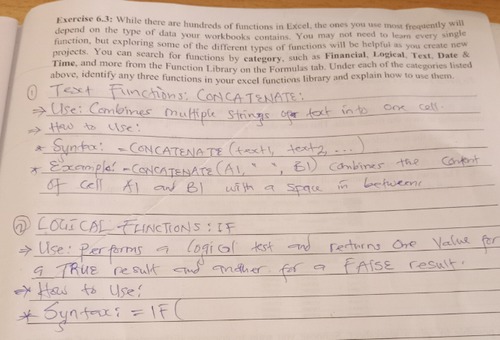 Exercise 6.3: While there are hundreds of functions in Excel, the ones you use most frequently will
depend on the type of data your workbooks contains. You may not need to learn every single
function, but exploring some of the different types of functions will be helpful as you create new
projects. You can search for functions by category, such as Financial, Logical, Text, Date &
Time, and more from the Function Library on the Formulas tab. Under each of the categories listed
above, identify any three functions in your excel functions library and explain how to use them.
① Text Functions: CONCATENATE:
→ Use: Combines multiple strings of text into one cell.
→ How to Use:
* Syntax: =CONCATENATE(text1, text2, ...)
* Example: =CONCATENATE(A1, " ", B1) combines the content
of cell A1 and B1 with a space in between.
② LOGICAL FUNCTIONS: IF
→ Use: Performs a logical test and returns one value for
a TRUE result and another for a FALSE result.
→ How to Use:
* Syntax: = IF(